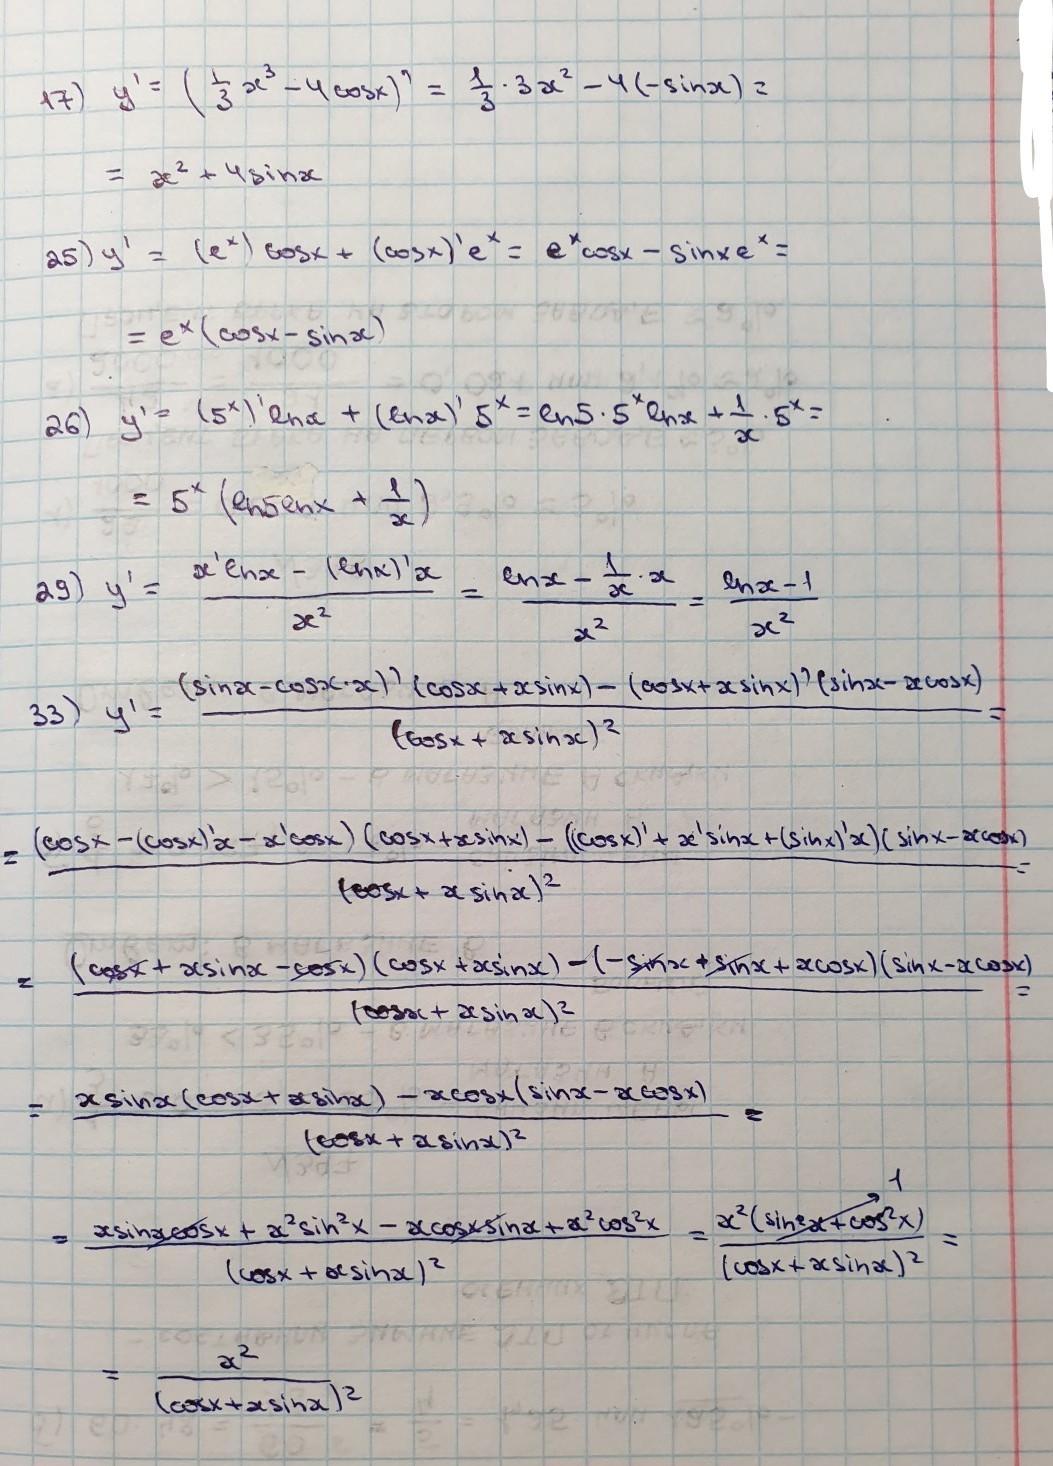 17) y' = (1/3 x³ - 4cosx)' = 1/3 · 3x² - 4(-sinx) =
= x² + 4sinx
25) y' = (eˣ) cosx + (cosx)' eˣ = eˣcosx - sinxeˣ =
= eˣ(cosx - sinx)
26) y' = (5ˣ)' lnx + (lnx)' 5ˣ = ln5 · 5ˣ lnx + 1/x · 5ˣ =
= 5ˣ (ln5lnx + 1/x)
29) y' = (x'lnx - (lnx)'x)/x² = (lnx - 1/x · x)/x² = (lnx - 1)/x²
33) y' = ((sinx - cosx·x)' (cosx + xsinx) - (cosx + xsinx)' (sinx - xcosx))/(cosx + xsinx)² =
= ((cosx - (cosx)'x - x'cosx) (cosx + xsinx) - ((cosx)' + x'sinx + (sinx)'x) (sinx - xcosx))/(cosx + xsinx)² =
= ((cosx + xsinx - cosx) (cosx + xsinx) - (-sinx + sinx + xcosx) (sinx - xcosx))/(cosx + xsinx)² =
= (xsinx(cosx + xsinx) - xcosx(sinx - xcosx))/(cosx + xsinx)² =
1
= (xsinxcosx + x²sin²x - xcosxsinx + x²cos²x)/(cosx + xsinx)² = x²(sin²x + cos²x)/(cosx + xsinx)² =
= x²/(cosx + xsinx)²